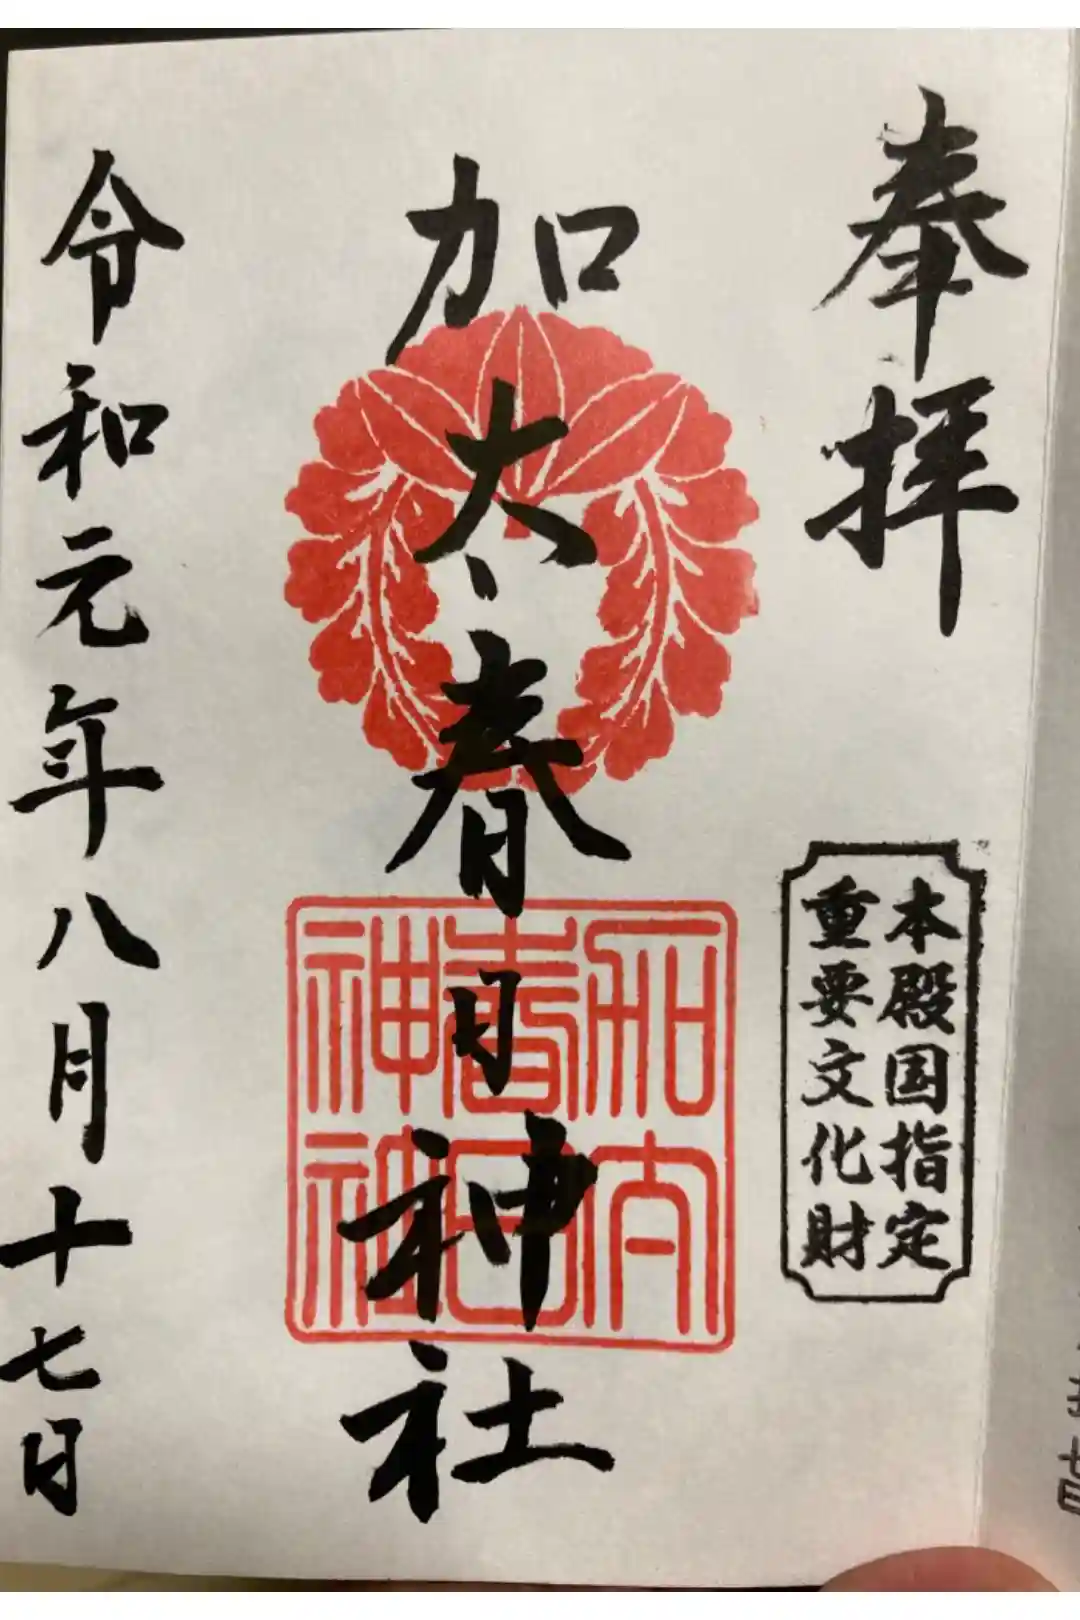 奉拝
本殿国指定
重要文化財
加太春日神社
加太
春日
神社
令和元年八月十七日